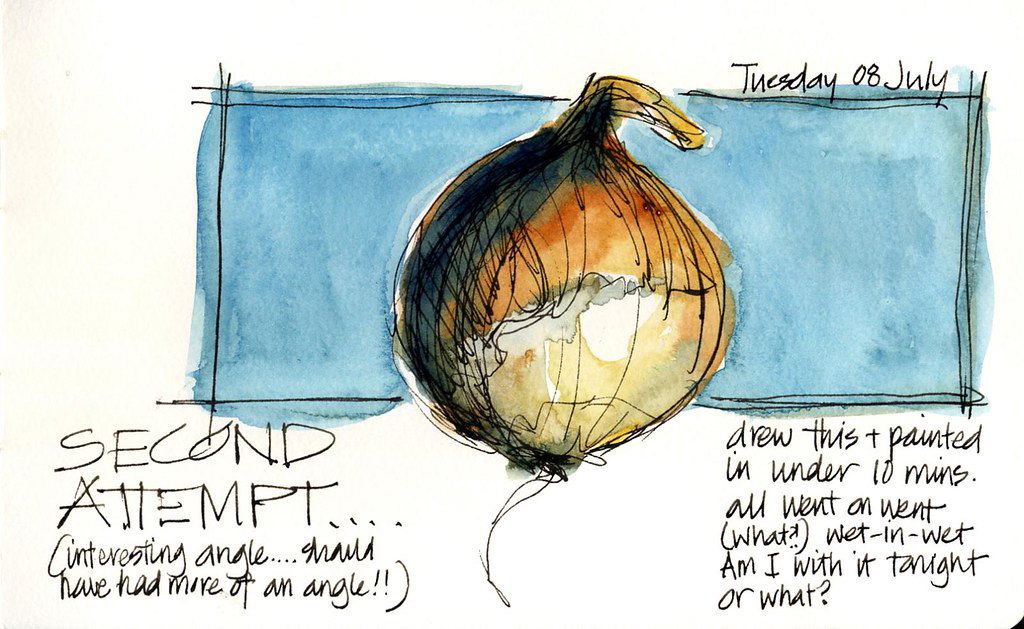 Tuesday 08 July
SECOND
ATTEMPT....
(interesting angle....should
have had more of an angle!!)
drew this + painted
in under 10 mins.
all went on went
(what?!) wet-in-wet
Am I with it tonight
or what?